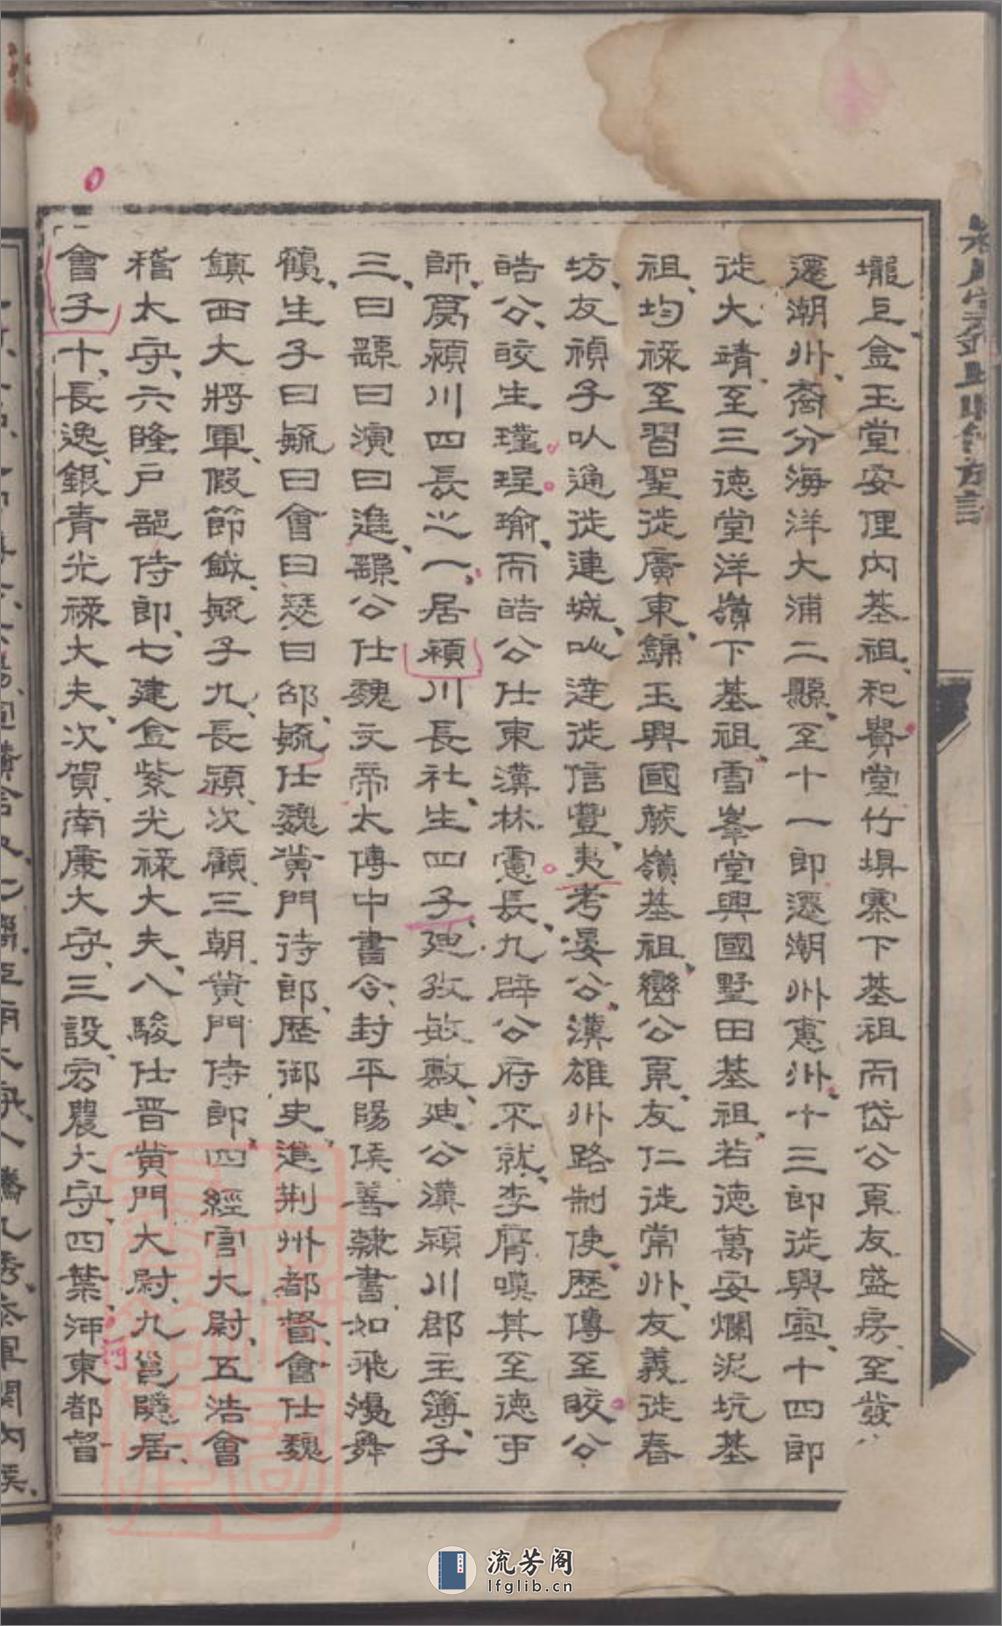 壠丘金玉堂安俚內基祖、和貴堂竹埧寨下基祖而岱公系友盛房、至發八
遷潮州、裔分海洋大浦二縣、至十一郎遷潮州惠州、十三郎徙興寧、十四郎
徙大靖、至三德堂洋嶺下基祖、雪峯堂興國墅田基祖、若德萬安爛泥坑基
祖、均祿至習聖徙廣東、錦玉興國蕨嶺基祖、巒公系、友仁徙常州、友義徙春
坊、友禎子以通徙連城、以達徙信豐、夷考晏公、漢雄州路制使、歷傳至皎公
皓公、皎生瑾珵瑜、而皓公仕東漢林慮長、九辟公府不就、李膺嘆其至德可
師、爲潁川四長之一、居潁川長社、生四子、廸孜敏敷、廸公漢潁川郡主簿、子
三、曰繇曰演曰進、繇公仕魏文帝太傅中書令、封平陽侯、善隸書、如飛鴻舞
鶴、生子曰毓曰會曰瑟曰邵、毓仕魏黃門待郎、歷御史、進荆州都督、會仕魏
鎮西大將軍、假節鉞、毓子九、長潁、次顧、三朝、黃門侍郎、四經官大尉、五浩會
稽太守、六隆戶部侍郎、七建金紫光祿大夫、八駿仕晋黃門大尉、九邕隱居、
會子十、長逸、銀青光祿大夫、次賀、南康大守、三設、宏農大守、四葉、沔東都督
河
流芳阁
lfglib.cn